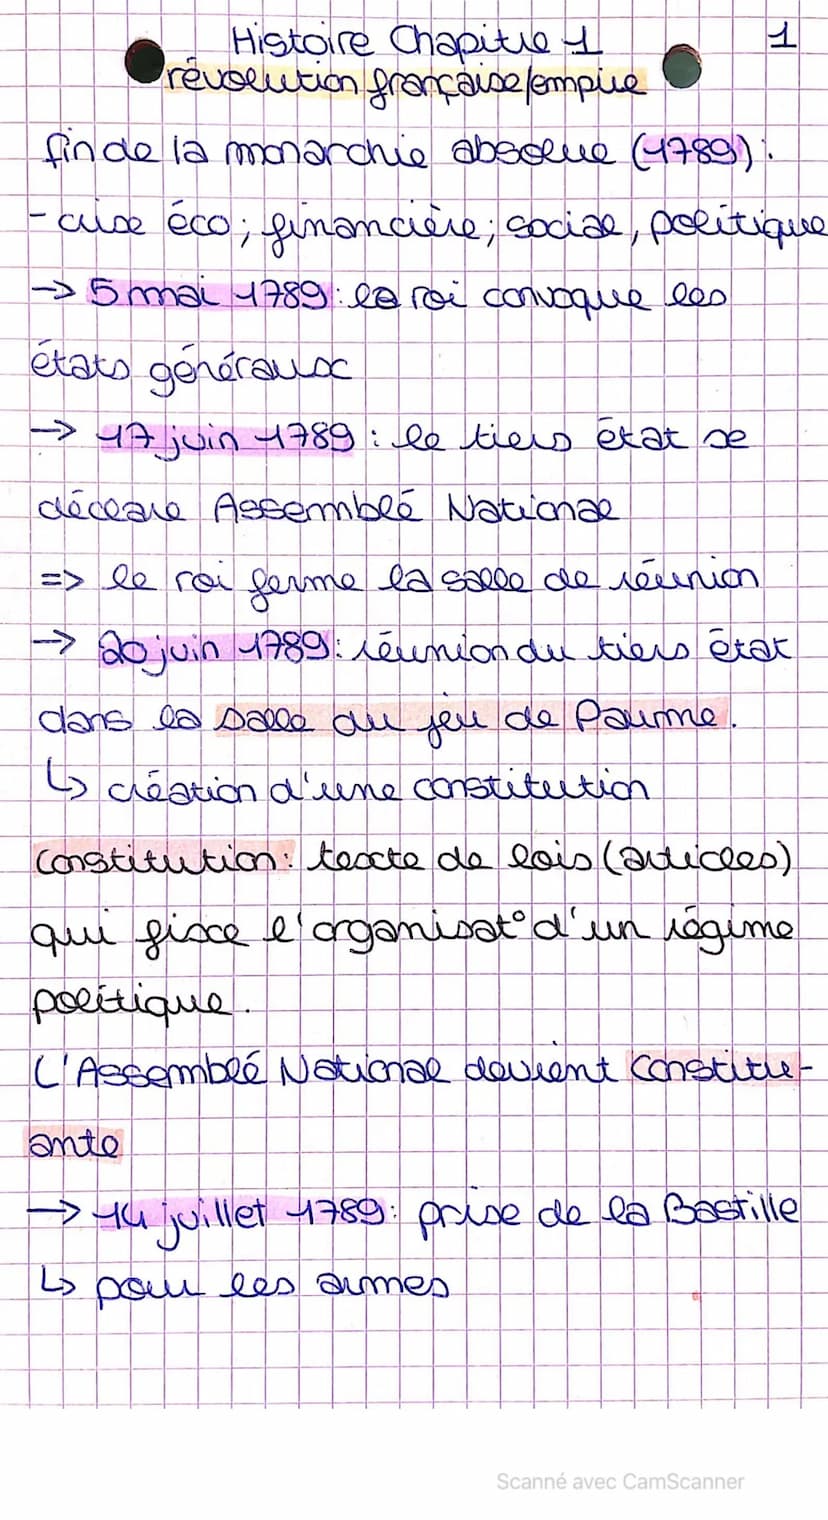 Histoire Chapitre 1
1
révolution française/empire
fin de la monarchie absolue (1789) :
- crise éco ; financière ; sociale, politique
→ 5 mai 1789 : le roi convoque les
états généraux
→ 17 juin 1789 : le tiers état se
déclare Assemblé National
=> le roi ferme la salle de réunion
→ 20 juin 1789 : réunion du tiers état
dans la salle du jeu de Paume.
↳ création d'une constitution
Constitution : texte de lois (articles)
qui fixe l'organisat° d'un régime
politique.
L'Assemblé National devient Constitu-
ante
→ 14 juillet 1789 : prise de la Bastille
↳ pour les armes
Scanné avec CamScanner